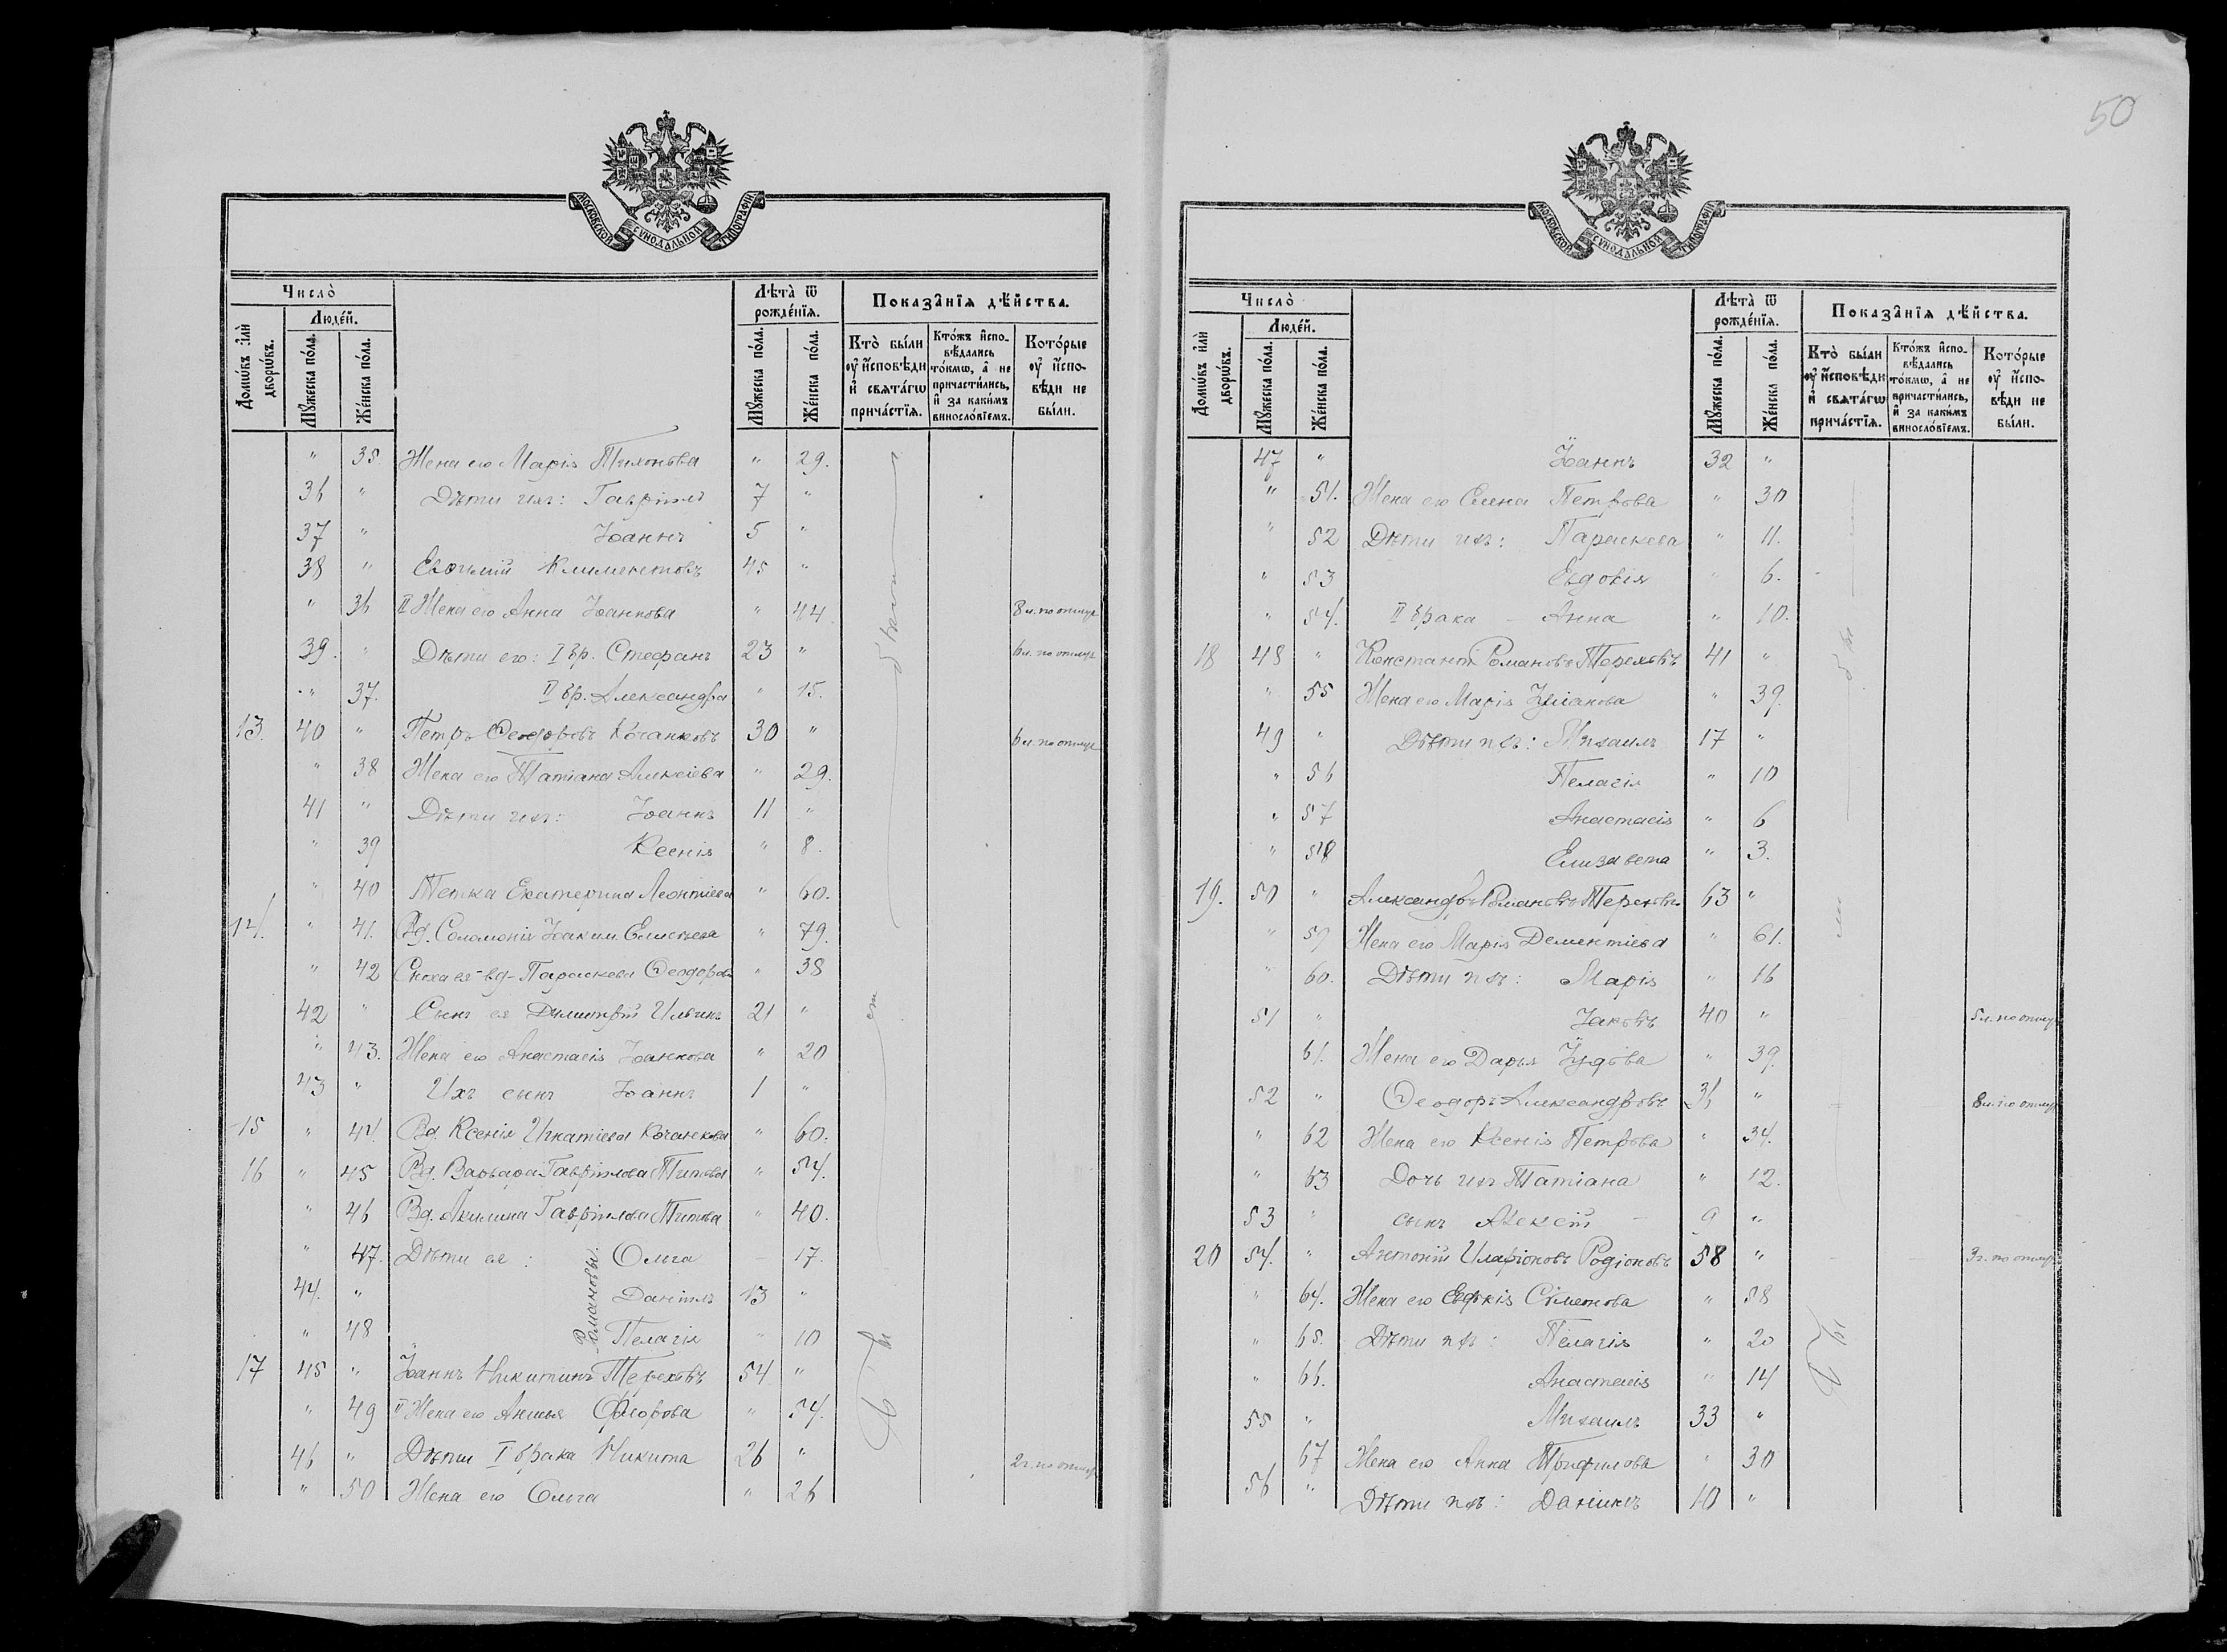 50
МОСКОВСКОЙ СѴНОДАЛЬНОЙ ТИПОГРАФІИ
Число̀
Людей.
Домѡвъ или дворѡвъ.
Мужеска пола.
Женска пола.
Лѣта ѿ рожденїя.
Мужеска пола.
Женска пола.
Показанїя дѣйства.
Кто были у исповѣди и святагѡ причастїя.
Ктожъ исповѣдались токмѡ, а не причастились, и за какимъ винословїемъ.
Которые у исповѣди не были.
" 35. Жена его Марія Тихонова " 29.
36 " Дѣти ихъ: Гавріилъ 7 "
37 " Іоаннъ 5 "
38 " Евѳимій Климентовъ 45 "
" 36 II Жена его Анна Іоаннова " 44 8 л. по отлуч
39. " Дѣти его: I бр. Стефанъ 23 " 6 л. по отлуч
" 37. II бр. Александра " 15.
13. 40 " Петръ Ѳеодоровъ Коганковъ 30 " 6 л. по отлуч
" 38 Жена его Татіана Алексіева " 29.
41 " Дѣти ихъ: Іоаннъ 11 "
" 39 Ксенія " 8.
" 40 Тетка Екатерина Леонтіева " 60.
14. " 41. Вд. Соломонія Іоаким. Елисѣева " 79.
" 42 Сноха ея вд. Параскева Ѳеодоров " 38
42 " Сынъ ея Димитрій Ильинъ 21 "
" 43. Жена его Анастасія Іоаннова " 20
43 " Ихъ сынъ Іоаннъ 1 "
15 " 44. Вд. Ксенія Игнатіева Коганкова " 60.
16 " 45 Вд. Варвара Гавріилова Титова " 54.
" 46 Вд. Акилина Гавріилова Титова " 40.
" 47. Дѣти ея: Ольга 17.
44. " Даніилъ 13 "
" 48 Пелагія " 10
Романовы.
17 45 " Іоаннъ Никитинъ Тереховъ 54 "
" 49 II Жена его Анисья Флорова " 54.
46 " Дѣти I брака Никита 26 " 2 г. по отлуч
" 50 Жена его Ольга " 26
Бы
ли
МОСКОВСКОЙ СѴНОДАЛЬНОЙ ТИПОГРАФІИ
Число̀
Людей.
Домѡвъ или дворѡвъ.
Мужеска пола.
Женска пола.
Лѣта ѿ рожденїя.
Мужеска пола.
Женска пола.
Показанїя дѣйства.
Кто были у исповѣди и святагѡ причастїя.
Ктожъ исповѣдались токмѡ, а не причастились, и за какимъ винословїемъ.
Которые у исповѣди не были.
47 " Іоаннъ 32 "
" 51. Жена его Елена Петрова " 30
" 52 Дѣти ихъ: Параскева " 11.
" 53 Евдокія " 6.
" 54. II брака – Анна " 10.
18 48 " Константъ Романовъ Тереховъ 41 "
" 55 Жена его Марія Іуліанова " 39.
49 " Дѣти ихъ: Михаилъ 17 "
" 56 Пелагія " 10
" 57 Анастасія " 6
" 58 Елизавета " 3.
19. 50 " Александръ Романовъ Тереховъ 63 "
" 59 Жена его Марія Дементіева " 61.
" 60. Дѣти ихъ: Марія " 16
51 " Іаковъ 40 " 5 л. по отлуч
61. Жена его Дарья Іудова " 39.
52 " Ѳеодоръ Александровъ 36 " 8 л. по отлуч
" 62 Жена его Ксенія Петрова " 34.
" 63 Дочь ихъ Татіана " 12.
53 " сынъ Алексій – 9 "
20 54. " Антоній Иларіоновъ Родіоновъ 58 " 3 г. по отлуч
" 64. Жена его Сѵмеонова " 58
" 65. Дѣти ихъ: Пелагія " 20
" 66. Анастасія " 14
55 " Михаилъ 33 "
67 Жена его Анна Трифилова " 30
56 " Дѣти ихъ: Даніилъ 10 "
Бы
ли